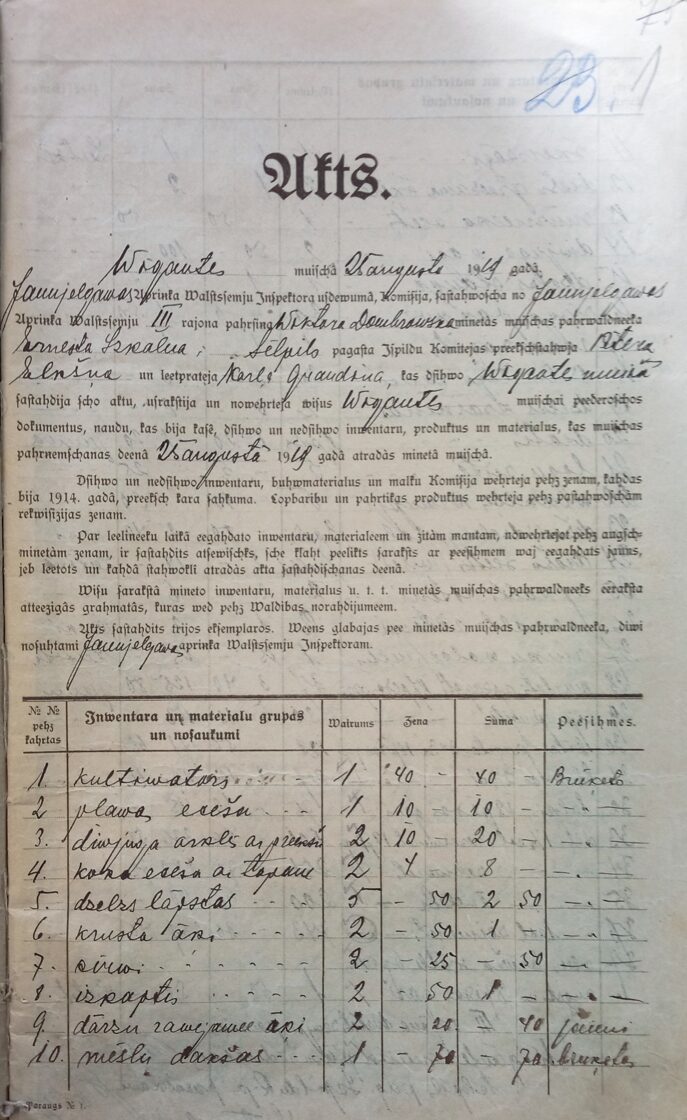 23. 1
Akts.
Wigantes muischâ 25 augusta 1919 gadâ.
Jaunjelgawas Aprinka Walstssemju Inspektora usdewumâ, Komisija, sastahwoscha no Jaunjelgawas
Aprinka Walstssemju III rajona pahrsina Wiktora Dombrowska minetâs muischas pahrwaldneeka
Ernesta Iskalna, Selpils pagasta Ispildu Komitejas preekschstahwja Petera
Elksna un leetprateja Karla Graudina, kas dsihwo Wigantes muischâ
sastahdija scho aktu, usrakstija un nowehrteja wisus Wigantes muischai peederoschos
dokumentus, naudu, kas bija kasê, dsihwo un nedsihwo inwentaru, produktus un materialus, kas muischas
pahrnemschanas deenâ 25 augustâ 1919 gadâ atradâs minetâ muischâ.
Dsihwo un nedsihwo inwentaru, buhwmaterialus un malku Komisija wehrteja pehz zenam, kahdas
bija 1914. gadâ, preeksch kara sahkuma. Lopbaribu un pahrtikas produktus wehrteja pehz pastahwoschâm
rekwisizijas zenam.
Par leelineeku laikâ eegahdato inwentaru, materialeem un zitâm mantam, nowehrtejot pehz augsch-
minetâm zenam, ir sastahdits atsewischks, sche klaht peelikts saraksts ar peesihmem waj eegahdats jauns,
jeb leetots un kahdâ stahwoklî atradâs akta sastahdischanas deenâ.
Wisu sarakstâ mineto inwentaru, materialus u. t. t. minetâs muischas pahrwaldneeks eeraksta
atteezigâs grahmatâs, kuras wed pehz Waldibas norahdijumeem.
Akts sastahdits trijos eksemplaros. Weens glabajas pee minetâs muischas pahrwaldneeka, diwi
nosuhtami Jaunjelgawas aprinka Walstssemju Inspektoram.
№ № pehz kahrtas Inwentara un materialu grupas un nosaukumi Wairums Zena Suma Peesihmes.
1. kultiwators 1 40 - 40 - Bruķets
2 plawas ezeša 1 10 - 10 - - " -
3. diwjuga arkls ar preekšu 2 10 - 20 - - " -
4. koka ezeša ar tapam 2 4 8 - - " -
5. dzelzs lāpstas 5 - 50 2 50 - " -
6. krusta āķi 2 - 50 1 - - " -
7. cirwi 2 - 25 - 50 - " -
8. izkaptis 2 - 50 1 - - " -
9. dārzu rawejamee āķi 2 20 - 40 jauni
10. mēslu dakšas 1 - 70 - 70 bruķetas
Paraugs № 1.